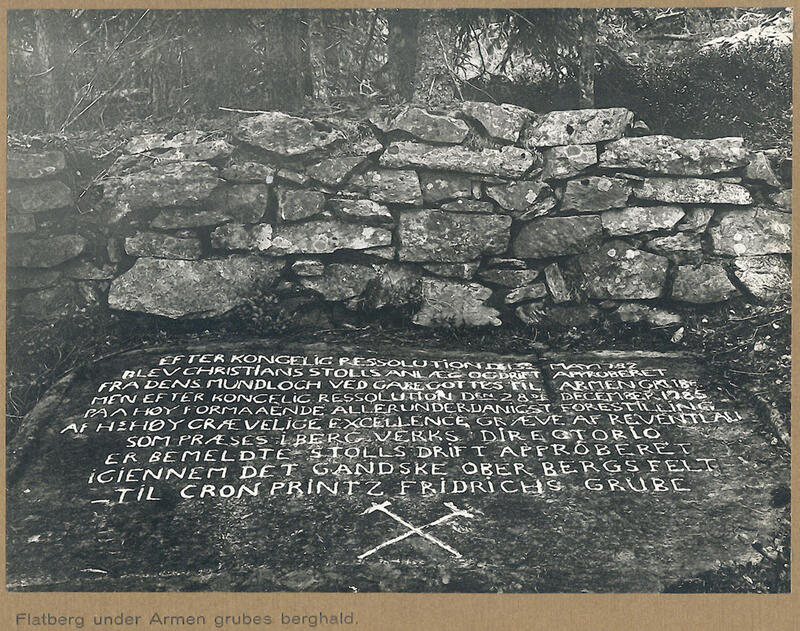 EFTER KONGELIG RESSOLUTION DEN MAY 178
BLEV CHRISTIANS STOLLS ANLÆG OG DRIFT APPROBERET
FRA DENS MUNDLOCH VED GABE GOTTES TIL ARMEN GRUBE
MEN EFTER KONGELIG RESSOLUTION DEN 28DE DECEMBER 1785
PAA HØY FORMAAENDE ALLERUNDERDANIGST FORESTILLING
AF HS HØY GRÆVELIGE EXCELLENCE GRÆVE AF REVENTLAU
SOM PRÆSES I BERG VERKS DIRECTORIO
ER BEMELDTE STOLLS DRIFT APPROBERET
IGIENNEM DET GANDSKE OBER BERGS FELT
TIL CRON PRINTZ FRIDRICHS GRUBE
Flatberg under Armen grubes berghald.